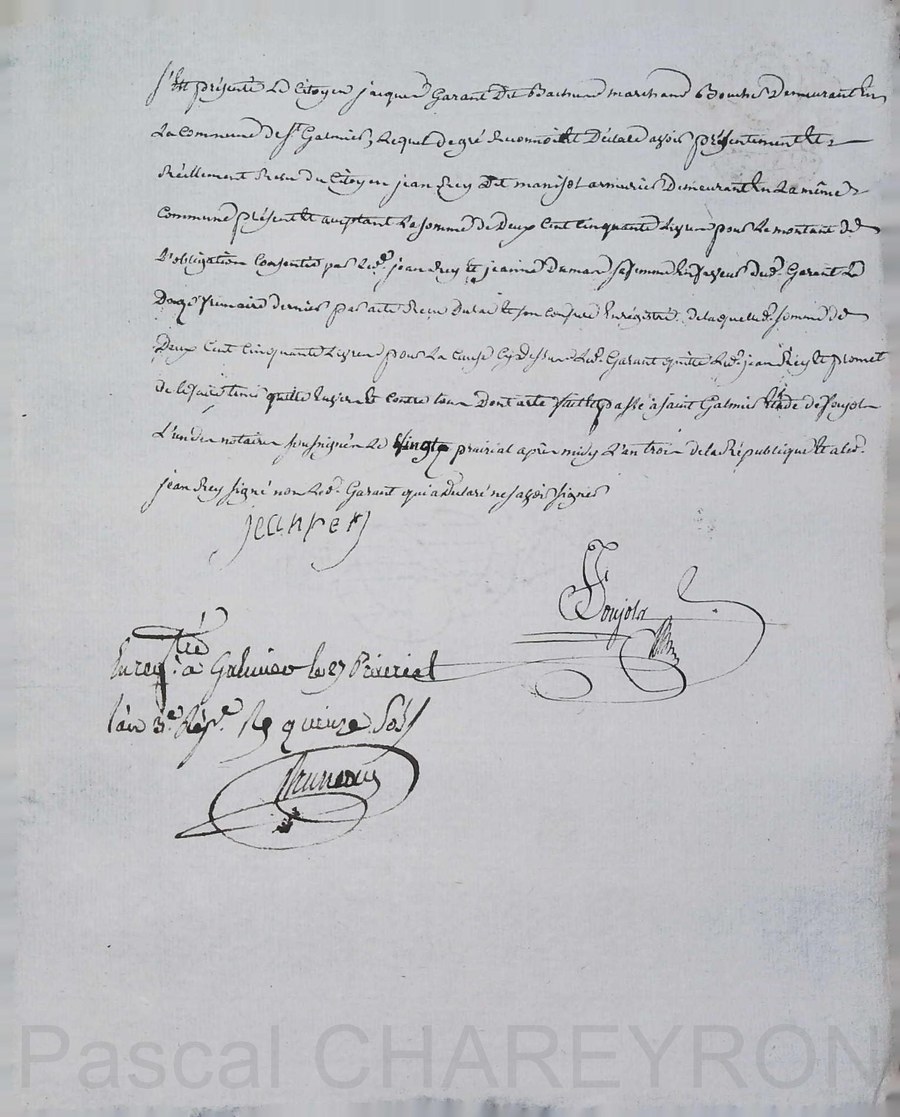 S'Est présenté Le Citoyen jacques Garant Dit Bachund marchand Boucher Demeurant En
La Commune de St. Galmier, Lequel de gré Reconnoit et Déclare avoir présentement et
Réellement Recu du Citoyen jean Rey Dit manisol armurier Demeurant En La même
Commune présent et acceptant La somme de Deux Cent Cinquante Livres pour Le montant de
L'obligation Consentie par Led. jean Rey et jeanne Dumas sa femme En faveur dud. Garant Le
Douze frimaire dernier par acte Recu Enregistré. de laquelle d. somme de
Deux Cent Cinquante Livres pour La Cause Cy Dessus Led. Garant quitte Led. jean Rey et promet
de le faire tenir quitte Envers et Contre tous Dont acte fait et passé à Saint Galmier Etude de Poujola
L'un des notaires soussignés Le vingt prairial après midy L'an trois de la République et a led.
jean Rey signé non Led. Garant qui a declaré ne savoir signer
jean rey
Poujola
Enregtré. à Galmier le 27 Prairial
l'an 3e. Rép.e R quinze Sols
Bruneaux
Pascal CHAREYRON